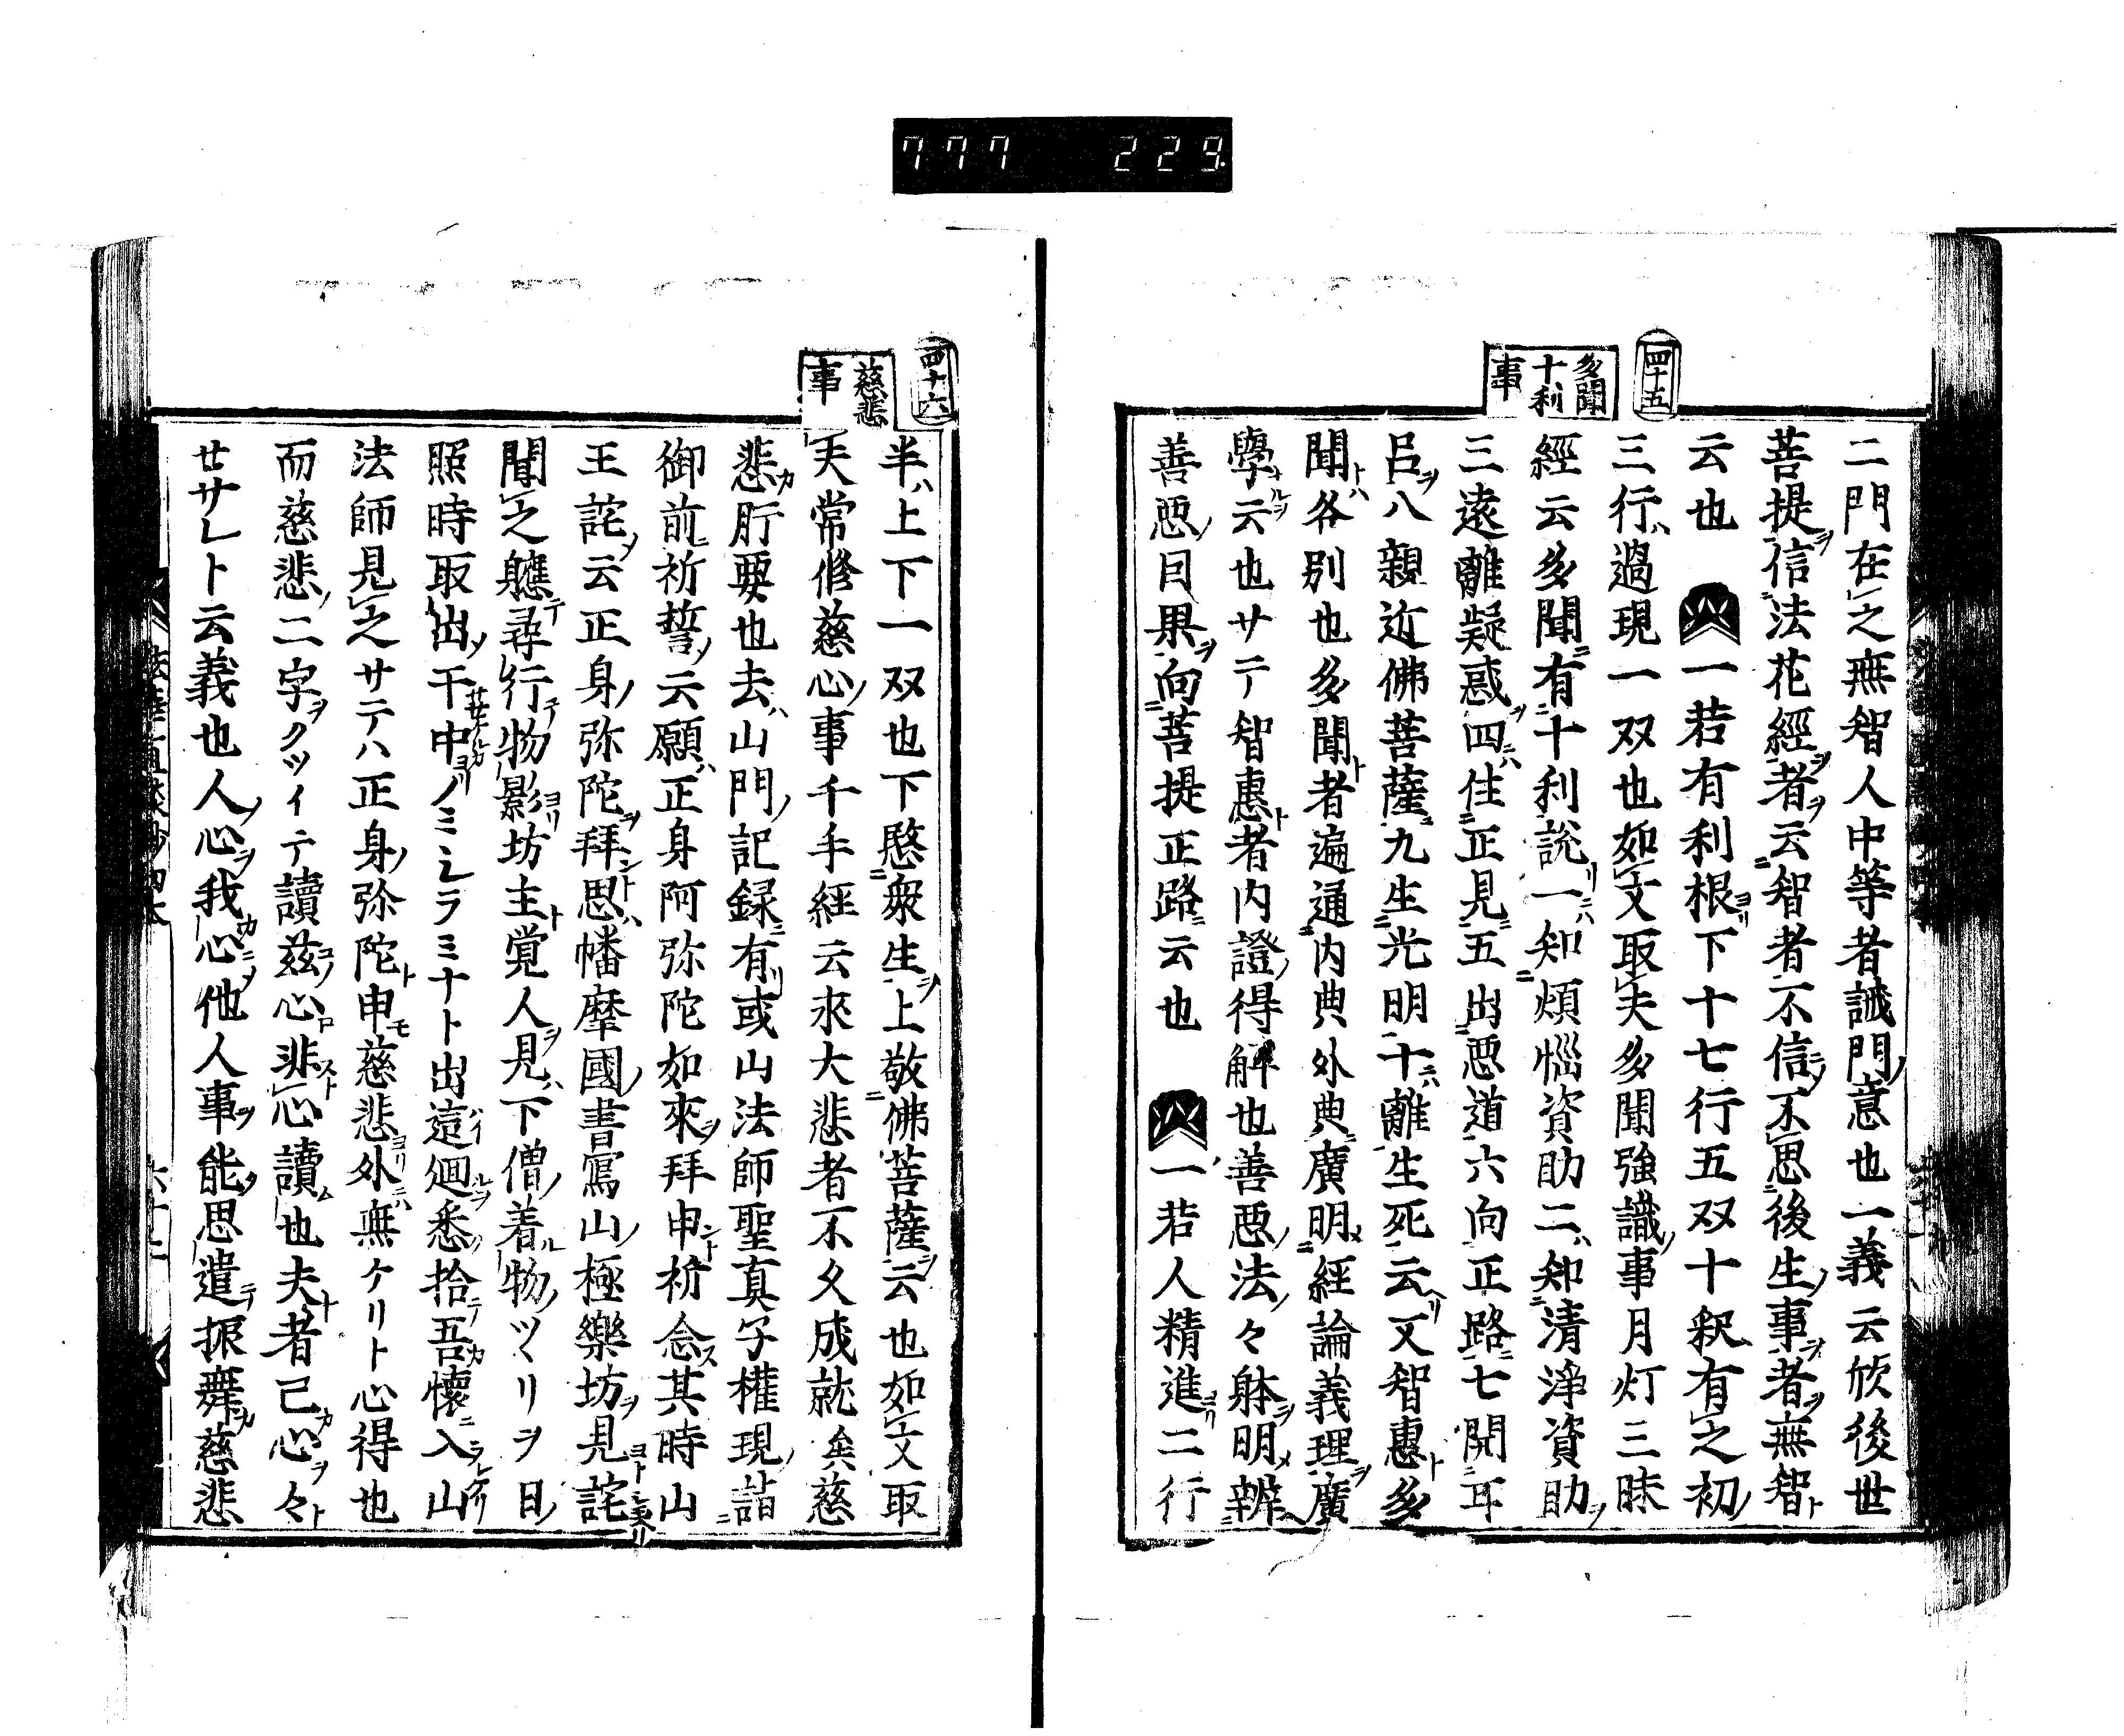 777 229
四十五
多聞十利事
二門在之無智人中等者誡門意也一義云欣後世
菩提信法花經者云智者不信不思後生事者無智
云也 一若有利根下十七行五双十釈有之初
三行過現一双也如文取夫多聞強識事月灯三昧
經云多聞有十利說一知煩惱資助二知清淨資助
三遠離疑惑四住正見五出悪道六向正路七開
八親近佛菩薩九生光明十離生死云又智惠多
聞各別也多聞者遍通內典外典廣明經論義理廣
學云也サテ智惠者內證得解也善悪法々躰明辨
善悪因果向菩提正路云也 一若人精進二行
四十六
慈悲事
半上下一双也下愍衆生上敬佛菩薩云也如文取
夫常修慈心事千手經云求大悲者不久成就矣慈
悲肝要也去山門記録有或山法師聖真子權現詣
御前祈誓云願正身阿弥陀如來拜申祈念其時山
王託云正身弥陀拜思幡摩國書寫山極樂坊見託
聞之軈尋行物影坊主覚人見下僧着物ツヽリヲ日
照時取出干中ノミシラミナト出這廻悉拾吾懷入山
法師見之サテハ正身弥陀申慈悲外無ケリト心得也
而慈悲二字クツイテ讀茲心非心讀也夫者己心々
廿サレト云義也人心我心他人事能思遣振舞慈悲